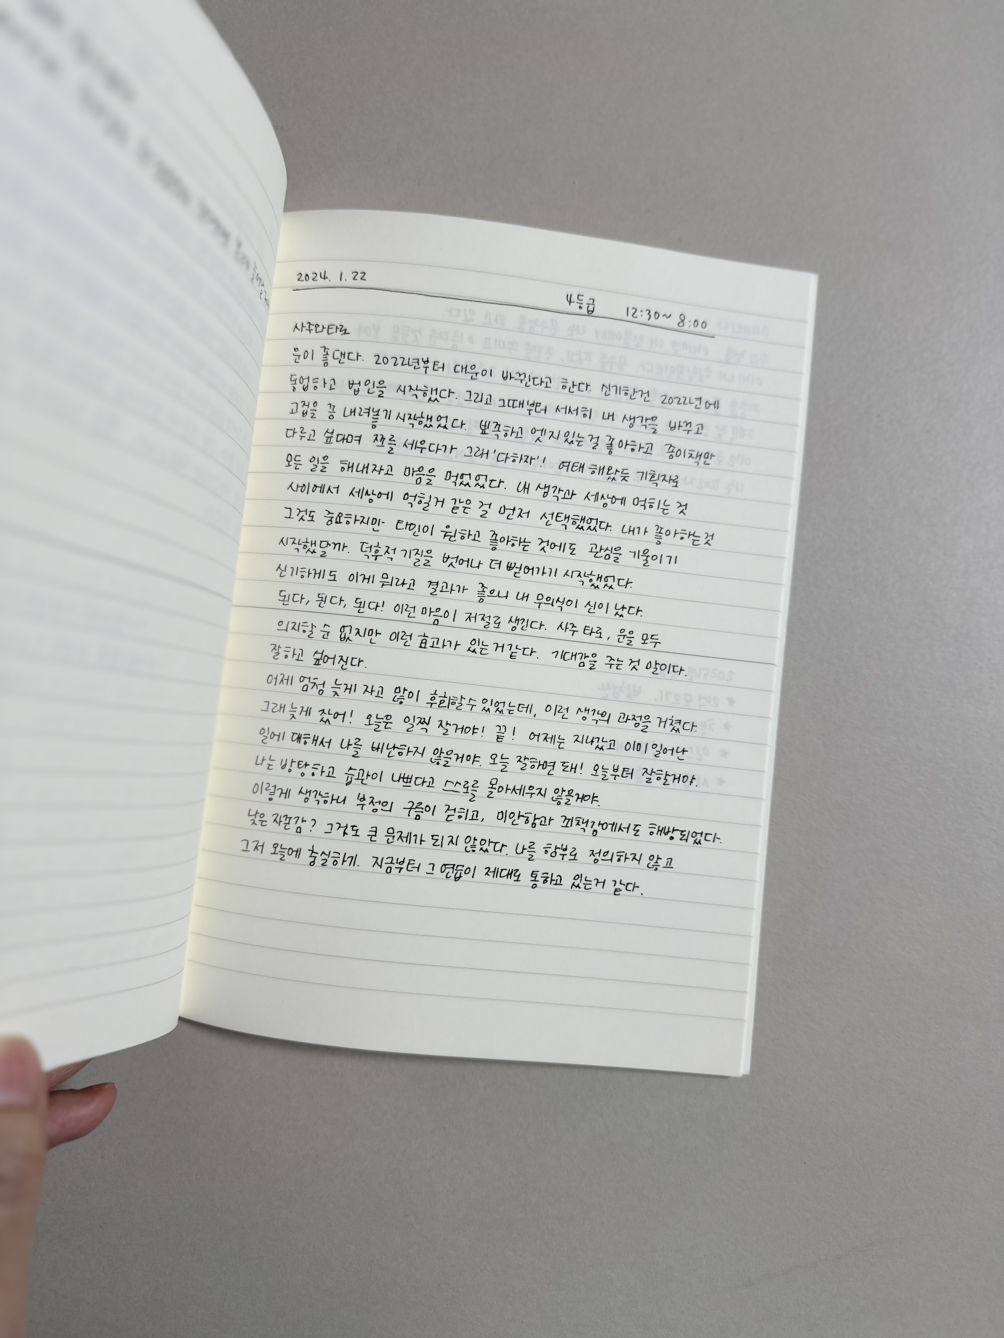 2024. 1. 22
4등급 12:30~8:00
사주와 타로
운이 좋댄다. 2022년부터 대운이 바뀐다고 한다. 신기한건 2022년에
동업하고 법인을 시작했다. 그리고 그때부터 서서히 내 생각을 바꾸고
고집을 끔 내려놓기 시작했었다. 뾰족하고 엣지있는걸 좋아하고 종이책만
다루고 싶다며 각을 세우다가 그래 '다하자'! 여태 해왔듯 기획자로
모든 일을 해내자고 마음을 먹었었다. 내 생각과 세상에 먹히는 것
사이에서 세상에 먹힐거 같은 걸 먼저 선택했었다. 내가 좋아하는것
그것도 중요하지만 타인이 원하고 좋아하는 것에도 관심을 기울이기
시작했달까. 덕후적 기질을 벗어나 더 뻗어가기 시작했었다.
신기하게도 이게 뭐라고 결과가 좋으니 내 무의식이 신이 났다.
된다, 된다, 된다! 이런 마음이 저절로 생긴다. 사주 타로, 운을 모두
의지할 순 없지만 이런 효과가 있는거 같다. 기대감을 주는 것 말이다.
잘하고 싶어진다.
어제 엄청 늦게 자고 많이 후회할 수 있었는데, 이런 생각의 과정을 거쳤다.
그래 늦게 잤어! 오늘은 일찍 잘거야! 끝! 어제는 지나갔고 이미 일어난
일에 대해서 나를 비난하지 않을거야. 오늘 잘하면 돼! 오늘부터 잘할거야.
나는 방탕하고 습관이 나쁘다고 스스로를 몰아세우지 않을거야.
이렇게 생각하니 부정의 구름이 걷히고, 미안함과 죄책감에서도 해방되었다.
낮은 자존감? 그것도 큰 문제가 되지 않았다. 나를 함부로 정의하지 않고
그저 오늘에 충실하기. 지금부터 그 연습이 제대로 통하고 있는거 같다.